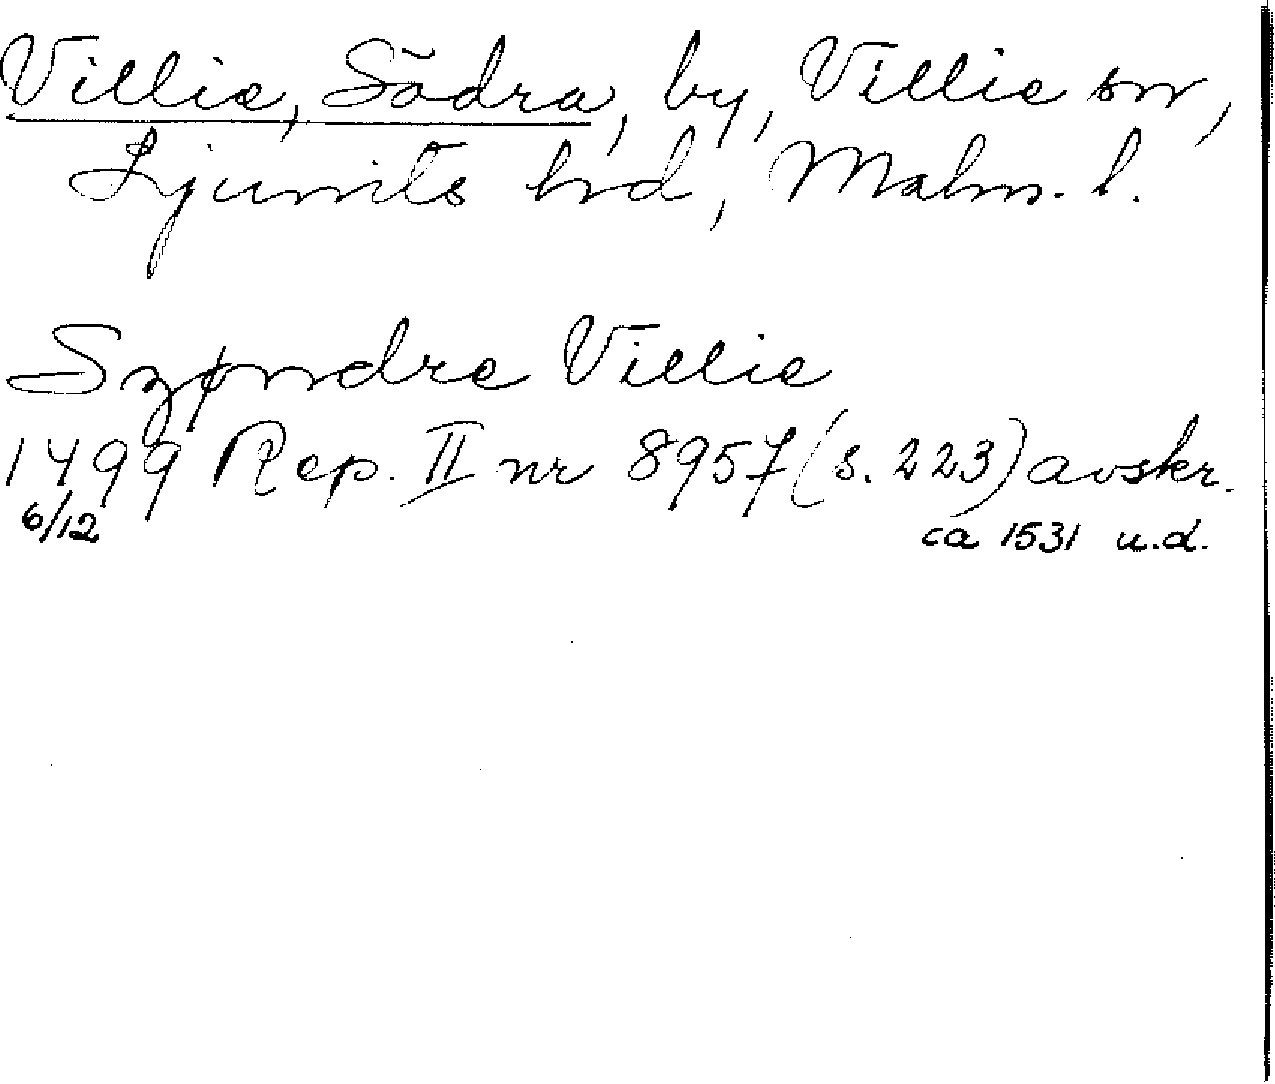 Villie, Södra, by, Villie sn,
Ljunits hrd, Malm. l.
Szøndre Villie
1499 Rep. II nr 8957 (s. 223) avskr.
6/12 ca 1531 u.d.